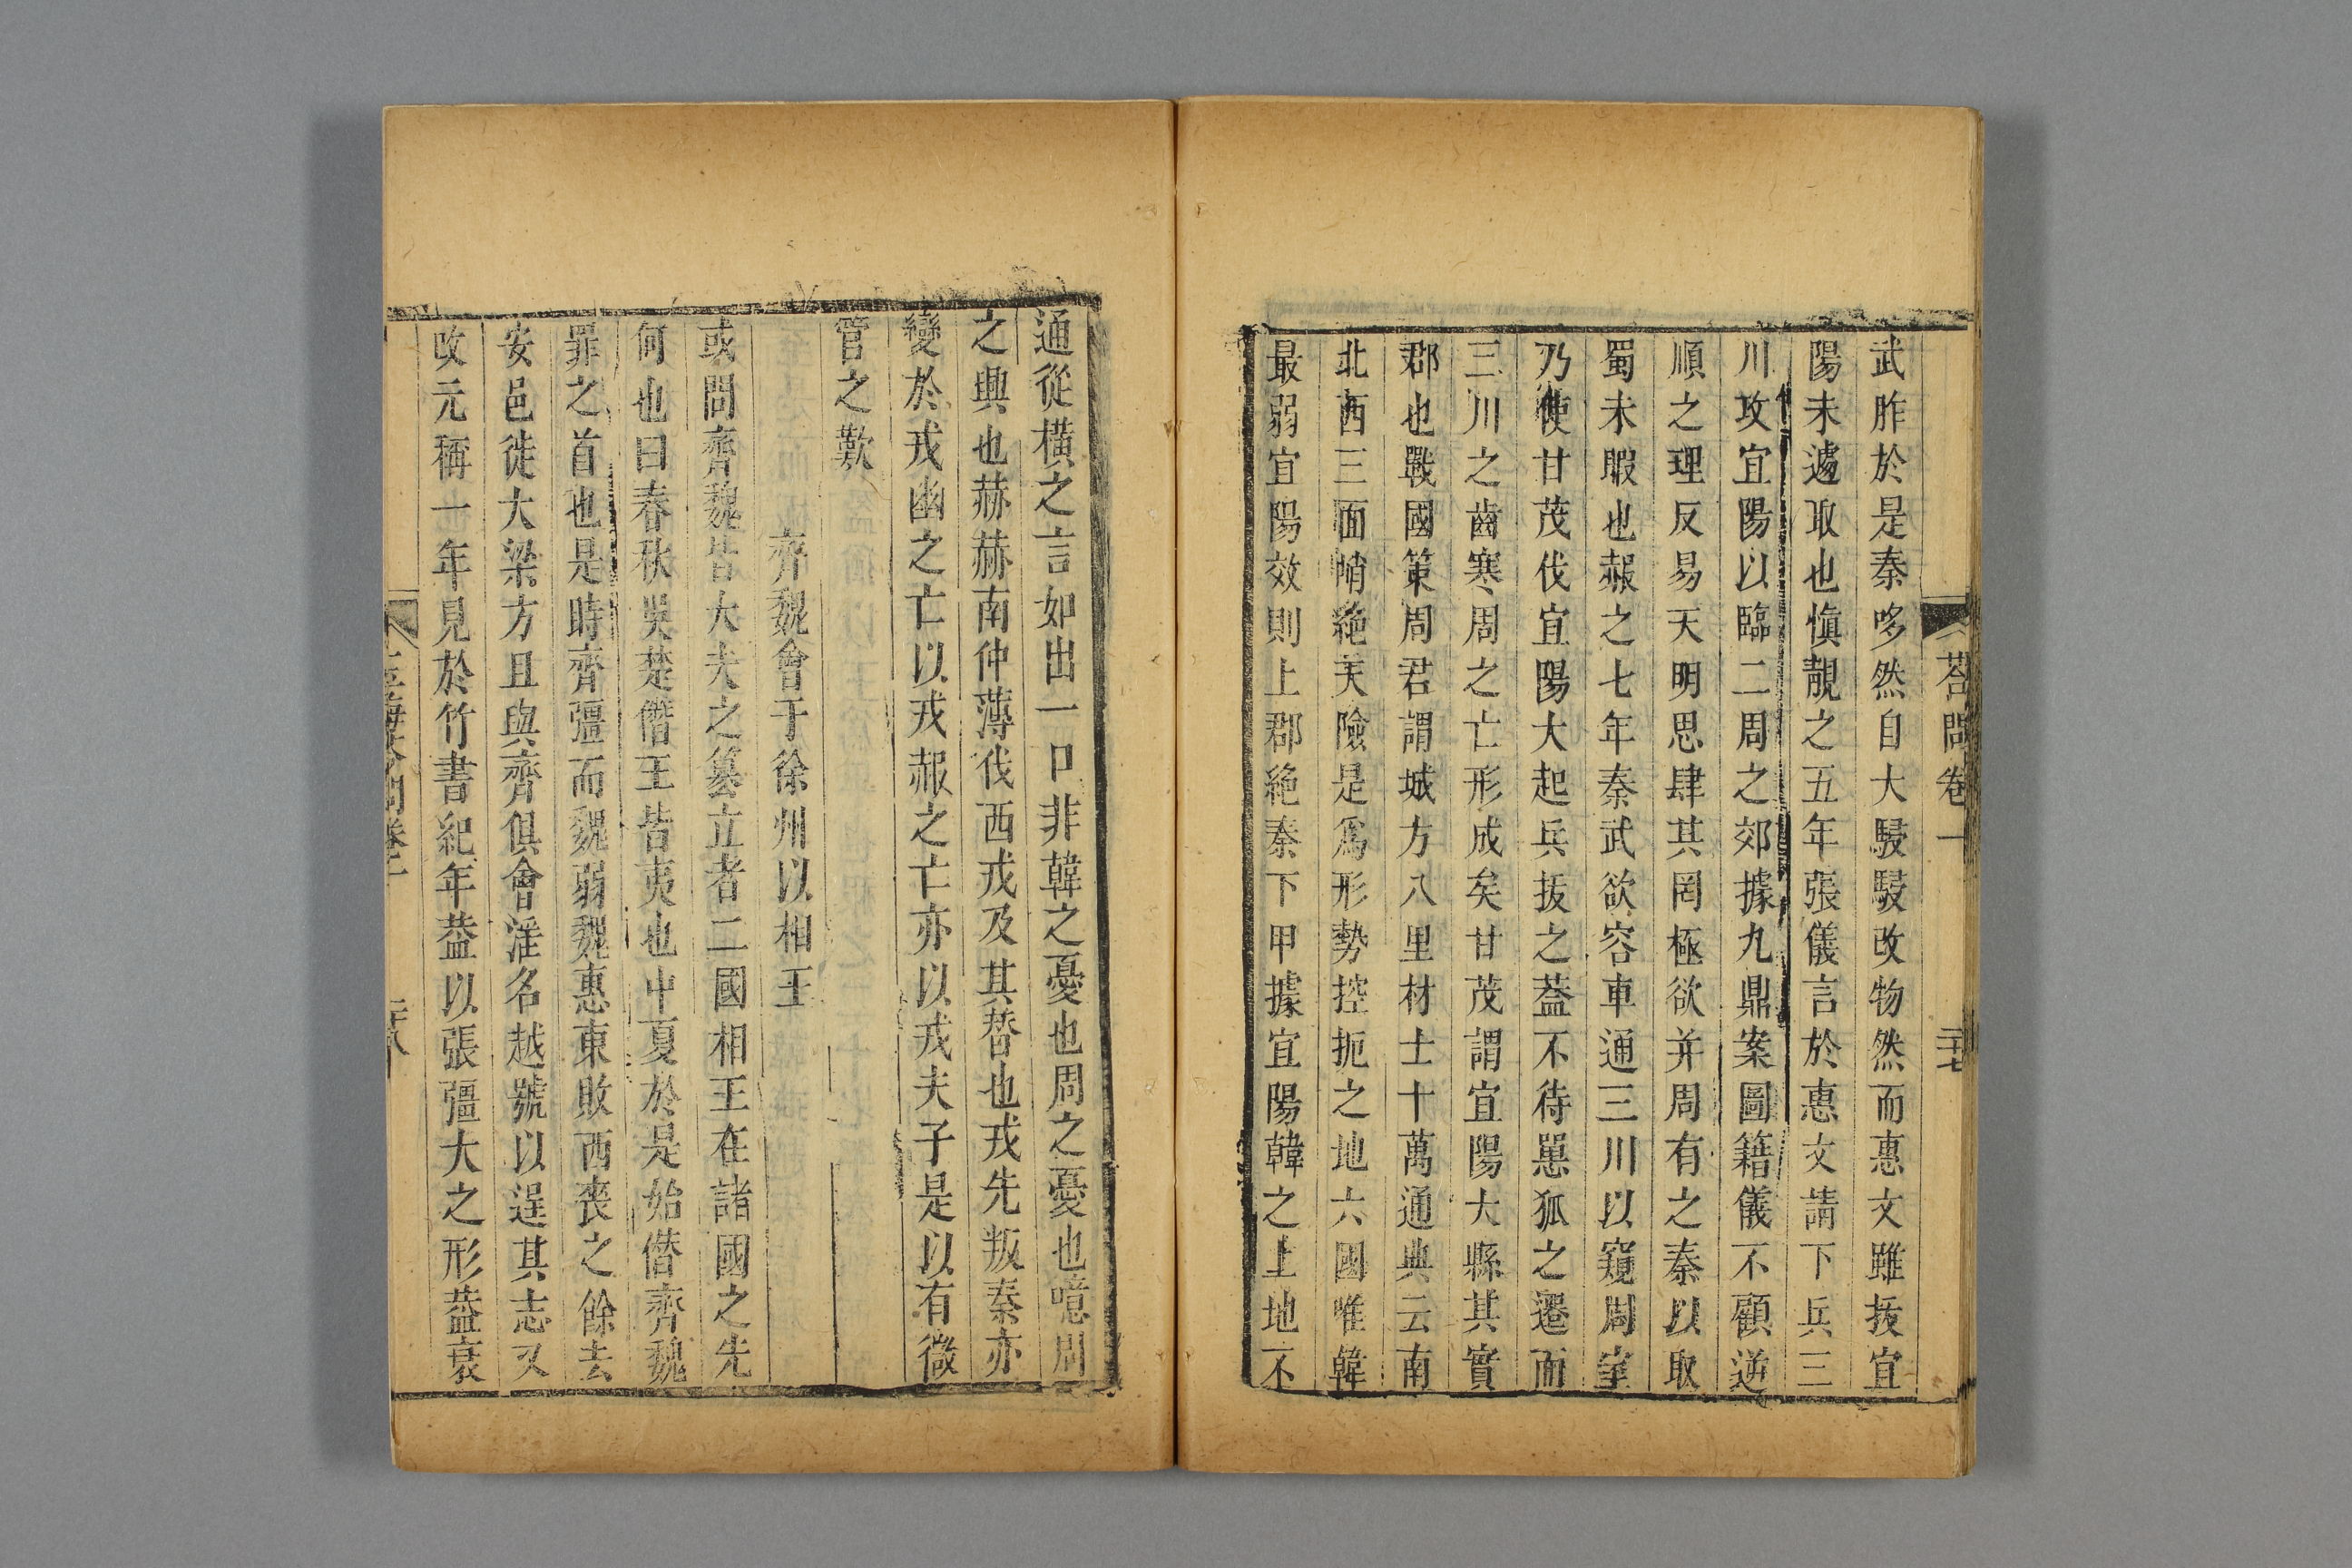 答問卷一
二十七
武胙於是秦哆然自大駸駸改物然而惠文雖拔宜
陽未遽取也愼靚之五年張儀言於惠文請下兵三
川攻宜陽以臨二周之郊據九鼎案圖籍儀不顧逆
順之理反易天明思肆其罔極欲并周有之秦以取
蜀未暇也赧之七年秦武欲容車通三川以窺周室
乃使甘茂伐宜陽大起兵拔之葢不待䍥狐之遷而
三川之齒寒周之亡形成矣甘茂謂宜陽大縣其實
郡也戰國策周君謂城方八里材士十萬通典云南
北西三面峭絶天險是爲形勢控扼之地六國唯韓
最弱宜陽效則上郡絶秦下甲據宜陽韓之上地不
通從橫之言如出一口非韓之憂也周之憂也噫周
之興也赫赫南仲薄伐西戎及其替也戎先叛秦亦
變於戎幽之亡以戎赧之亡亦以戎夫子是以有微
管之歎
齊魏會于徐州以相王
或問齊魏皆大夫之簒立者二國相王在諸國之先
何也曰春秋吳楚僭王皆夷也中夏於是始僭齊魏
罪之首也是時齊彊而魏弱魏惠東敗西喪之餘去
安邑徙大梁方且與齊俱會淮名越號以逞其志又
改元稱一年見於竹書紀年葢以張彊大之形葢衰